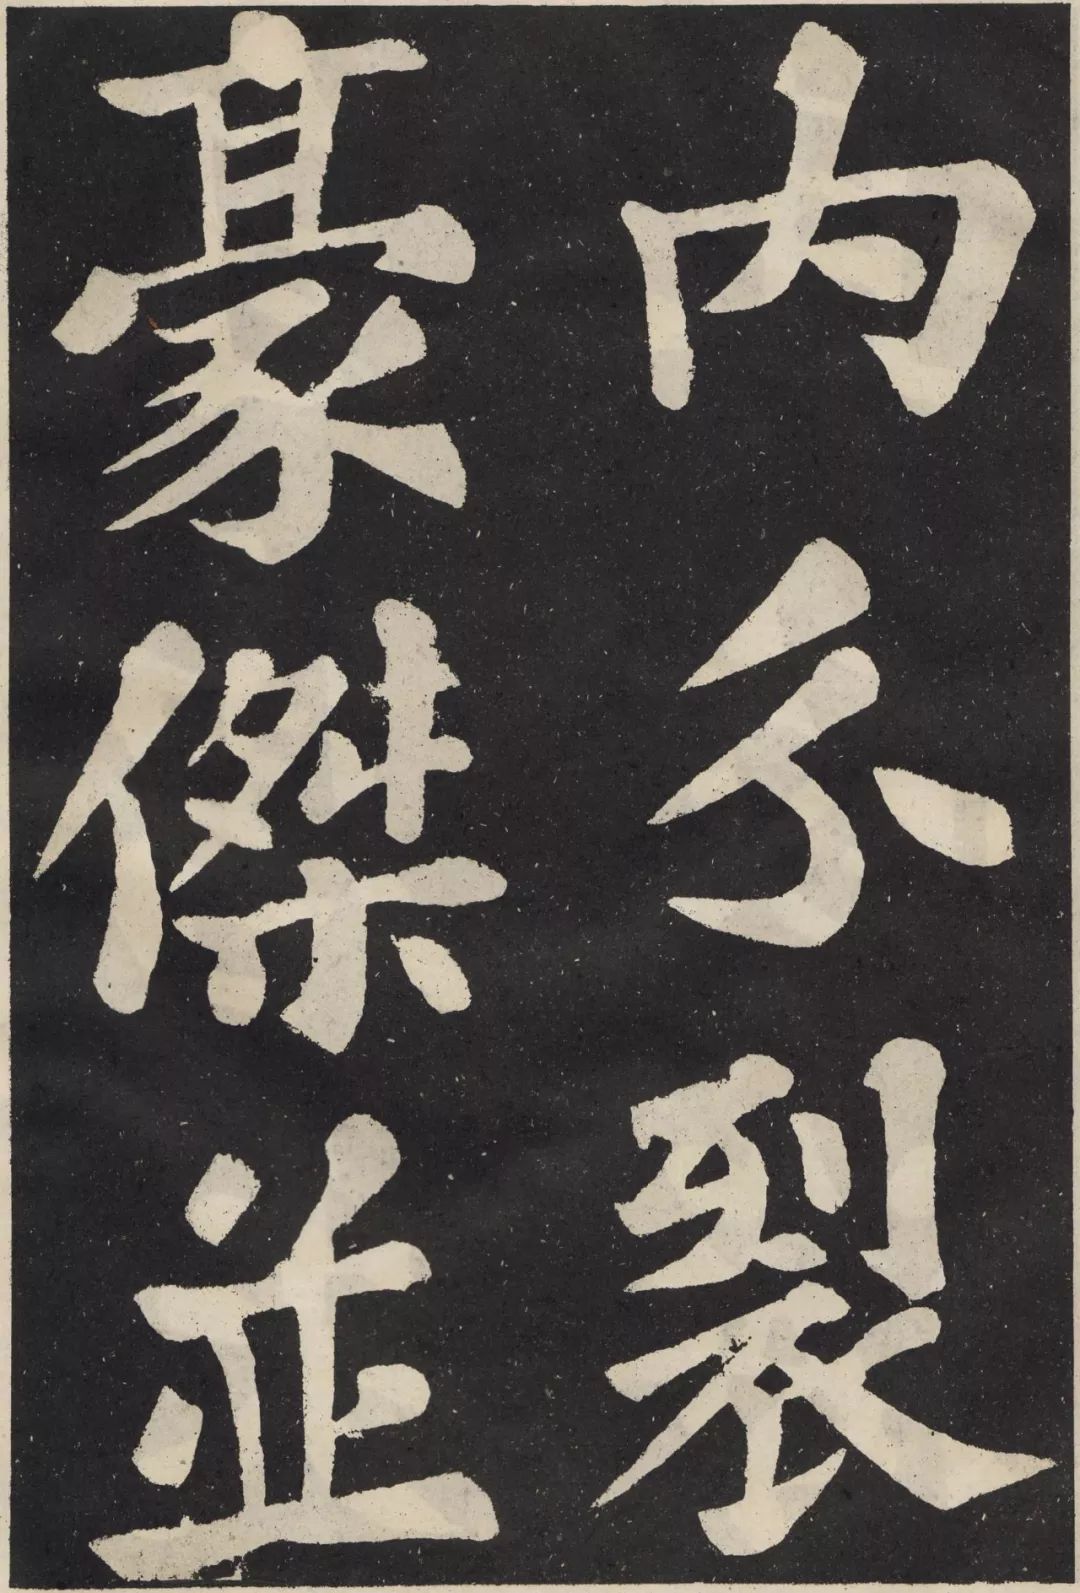 內分裂
豪傑並